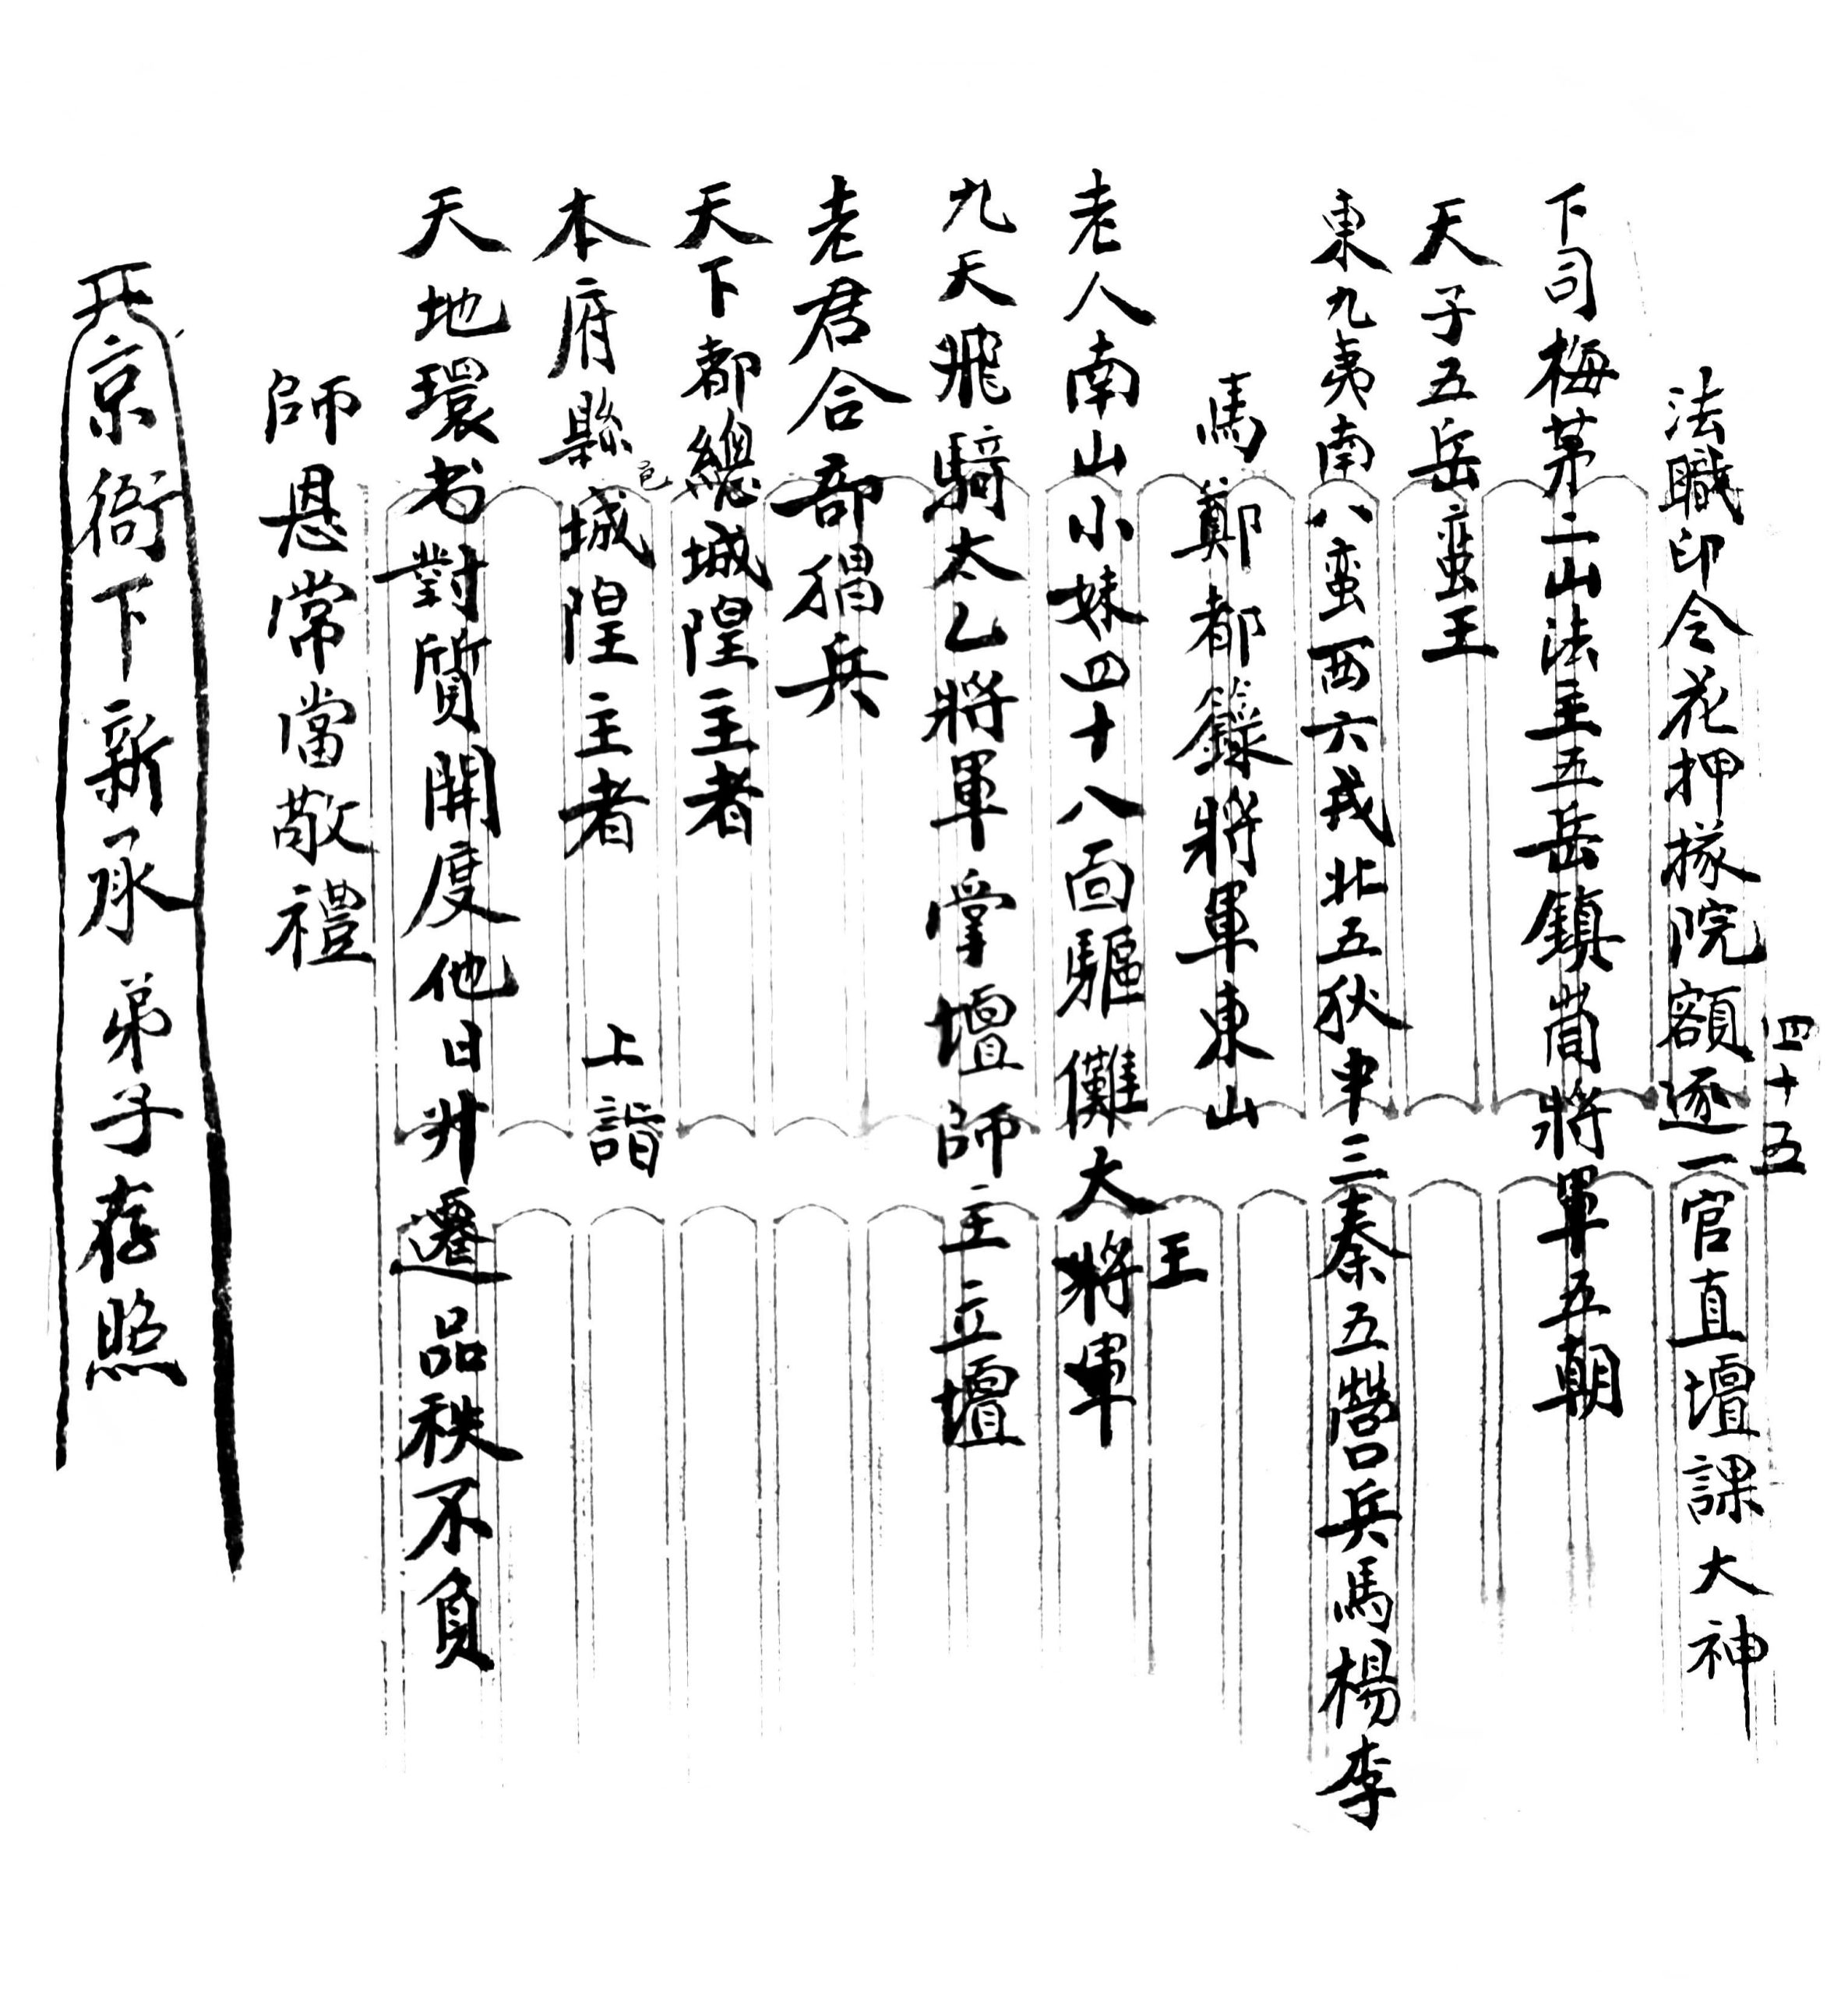 四十五
法職印令花押掾院額逐一官直壇課大神
下司梅茅二山法主五岳鎮蒿將軍五朝
天子五岳蛮王
東九夷南八蛮西六戎北五狄中三秦五營兵馬楊李
馬鄭都籙將軍東山王
老人南山小妹四十八面驅儺大將軍
九天飛騎太乙將軍掌壇師主立壇
老君合部猖兵
天下都總城隍主者
本府縣邑城隍主者 上詣
天地環者對質開度他日升遷品秩不負
師恩常當敬禮
天京衙下新承弟子存照